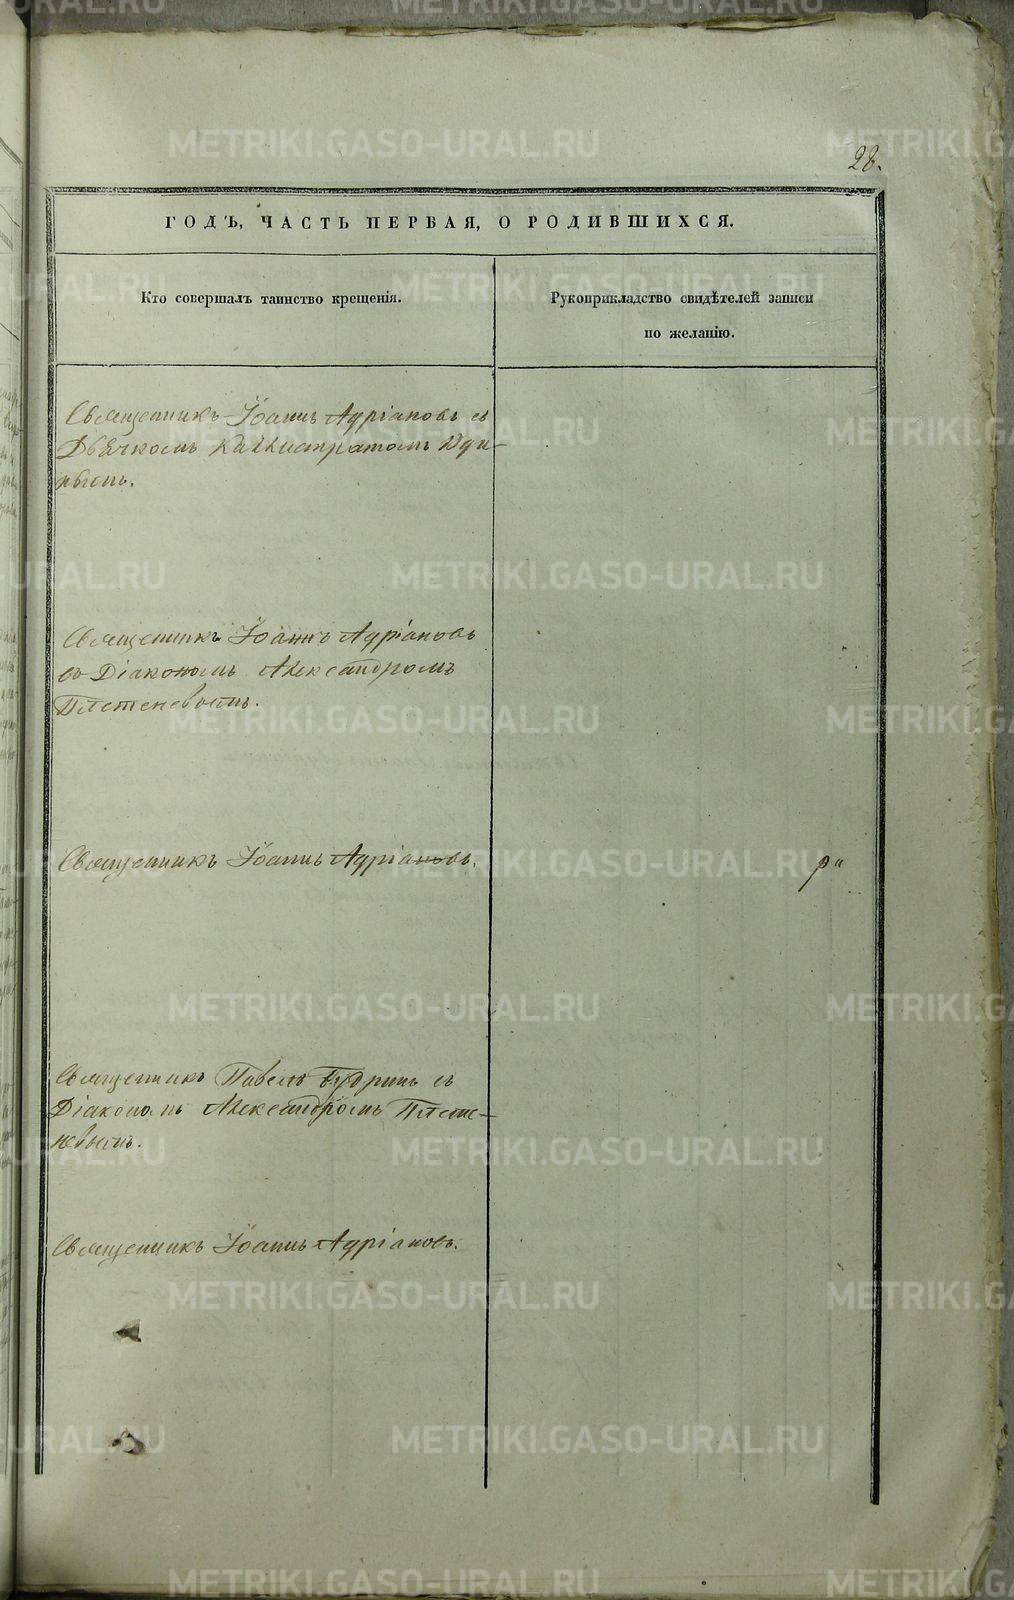 28.
ГОДЪ, ЧАСТЬ ПЕРВАЯ, О РОДИВШИХСЯ.
Кто совершалъ таинство крещенія.
Рукоприкладство свидѣтелей записи
по желанію.
Священникъ Іоаннъ Адріановъ съ
Дьячкомъ Каллистратомъ
Священникъ Іоаннъ Адріановъ
съ Діакономъ Александромъ
Плетеневымъ.
Священникъ Іоаннъ Адріановъ.
Священникъ Павелъ Будринъ съ
Діакономъ Александромъ Плете-
невымъ.
Священникъ Іоаннъ Адріановъ.
METRIKI.GASO-URAL.RU